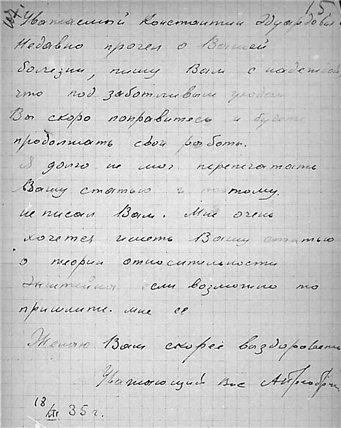 Уважаемый Константин Эдуардович
Недавно прочел о Вашей
болезни, пишу Вам с надеждой,
что под заботливым уходом
Вы скоро поправитесь и будете
продолжать свои работы.
Я долго не мог перепечатать
Вашу статью и поэтому
не писал Вам. Мне очень
хочется иметь Вашу статью
о теории относительности
Энштейна если возможно то
пришлите мне ее
Желаю Вам скорее выздоровле
Уважающий Вас
18
35 г.